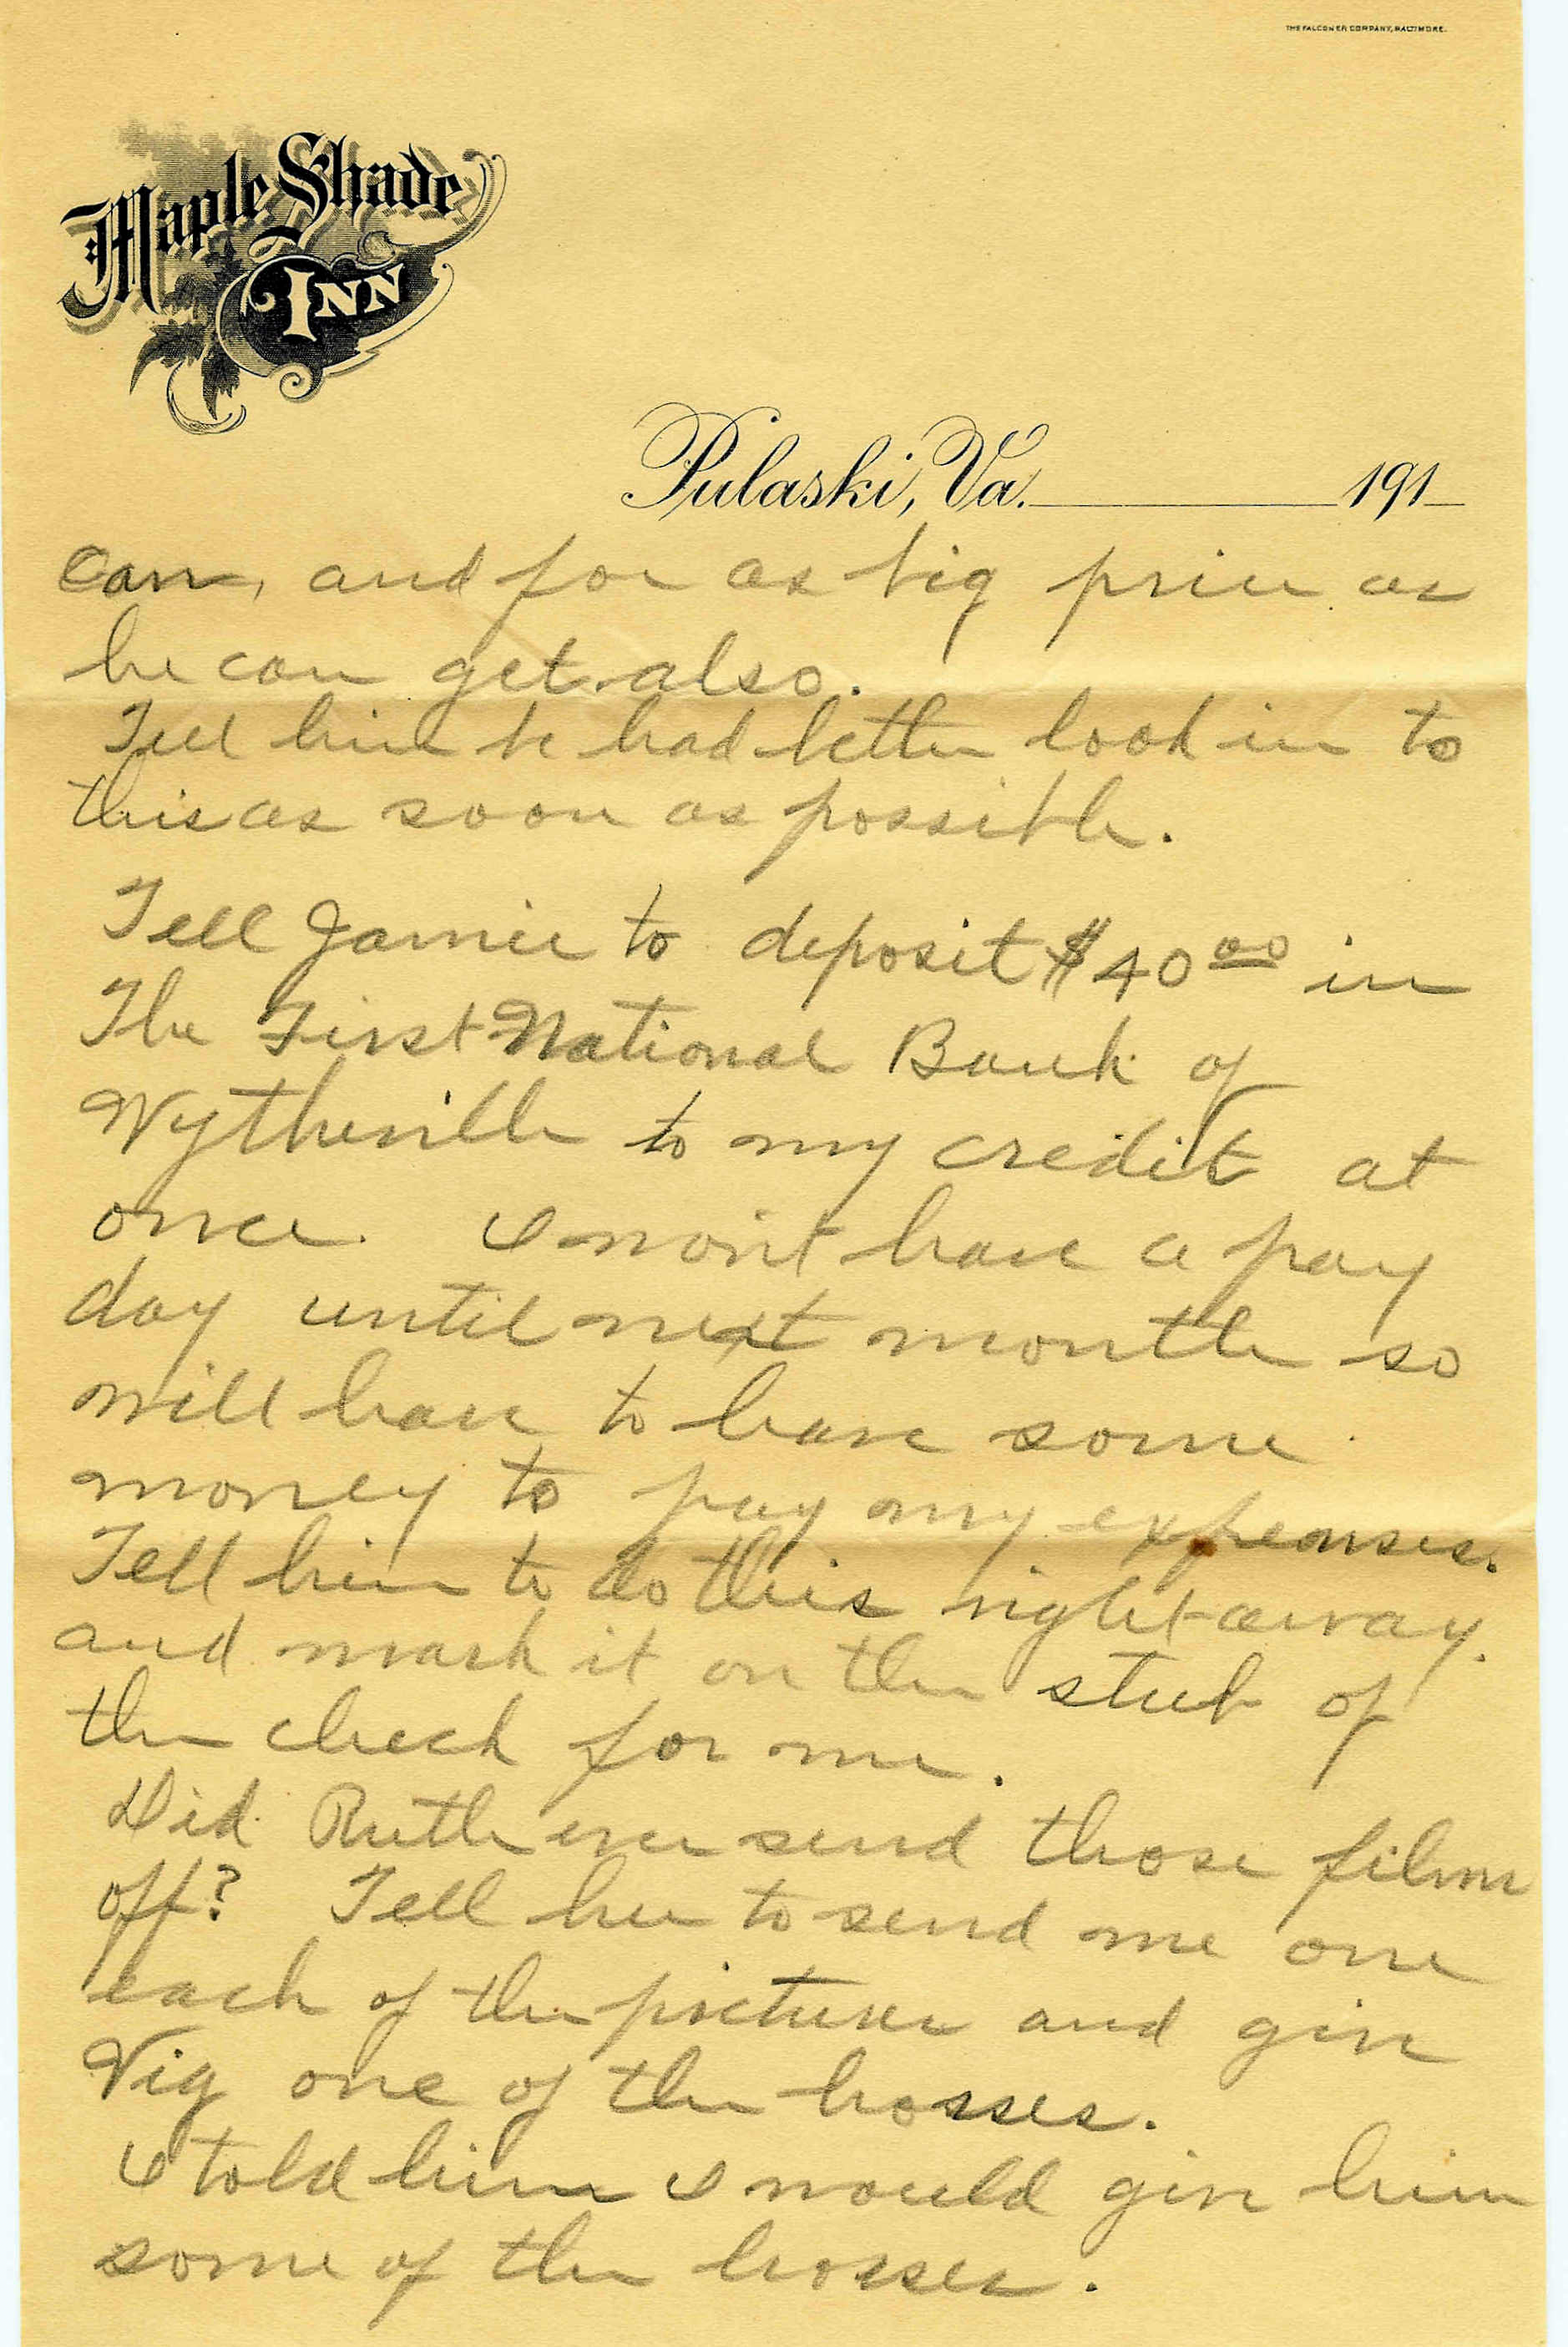 THE FALCONER COMPANY, BALTIMORE.
Maple Shade
INN
Pulaski, Va. 191
Can, and for as big price as
he can get also.
Tell him he had better look in to
this as soon as possible.
Tell Jamie to deposit $40 00 in
The First National Bank of
Wytheville to my credit at
once. I won't have a pay
day until next month so
will have to have some
money to pay my expenses.
Tell him to do this right away.
and mark it on the stub of
the check for me.
Did Ruth ever send those films
off? Tell her to send me one
each of the pictures and give
Vig one of the hosses.
I told him I would give him
some of the hosses.